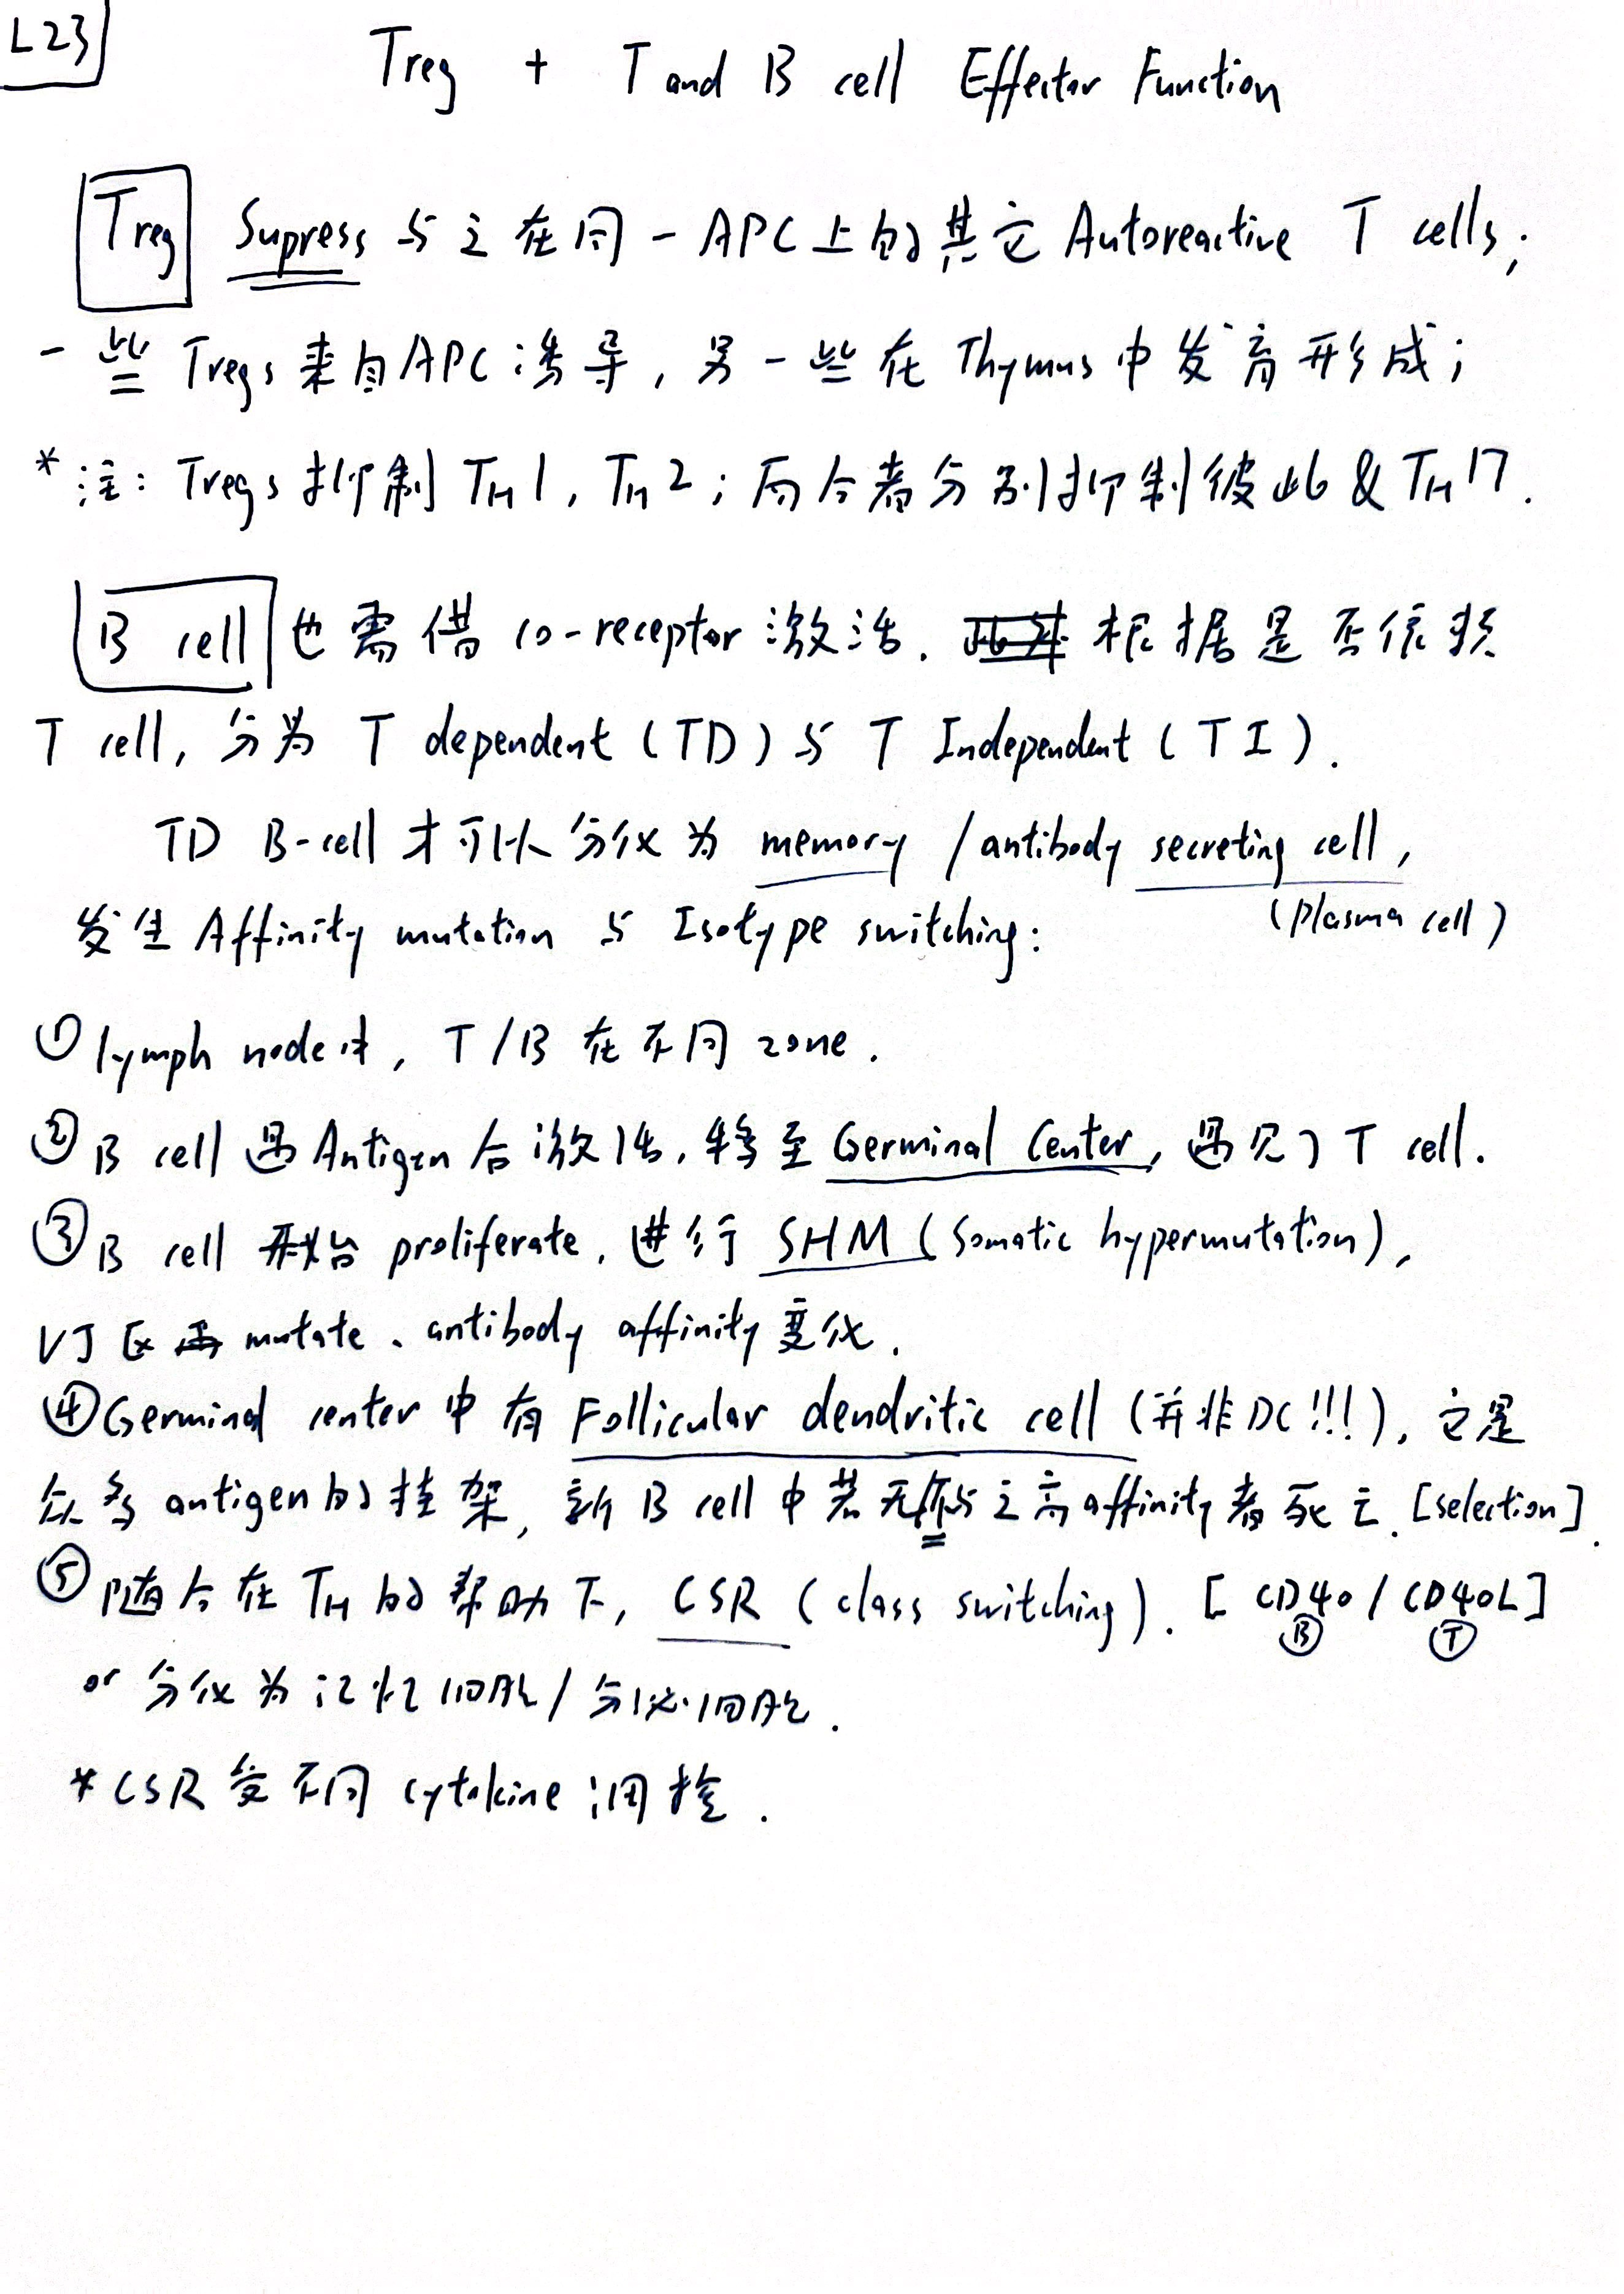 L23
Treg + T and B cell Effector Function
Treg Supress 与之在同一APC上的其它 Autoreactive T cells;
一些 Tregs 来自APC诱导, 另一些在 Thymus 中发育形成;
*注: Tregs 抑制 TH1, TH2; 而后者分别抑制彼此 & TH17.
B cell 也需借 co-receptor 激活. 根据是否依赖
T cell, 分为 T dependent (TD) 与 T Independent (TI).
TD B-cell 才可以分化为 memory / antibody secreting cell,
(plasma cell)
发生 Affinity mutation 与 Isotype switching:
① lymph node中, T/B 在不同 zone.
② B cell 遇 Antigen 后激活, 转至 Germinal Center, 遇见了 T cell.
③ B cell 开始 proliferate, 进行 SHM (Somatic hypermutation),
VJ区再 mutate、antibody affinity 变化.
④ Germinal center 中有 Follicular dendritic cell (并非DC!!!), 它是
众多 antigen 的挂架, 新 B cell 中若无与之高affinity者死亡. [selection].
⑤ 随后在 TH 的帮助下, CSR (class switching). [CD40 / CD40L]
Ⓑ Ⓣ
or 分化为记忆细胞/分泌细胞.
* CSR 受不同 cytokine 调控.